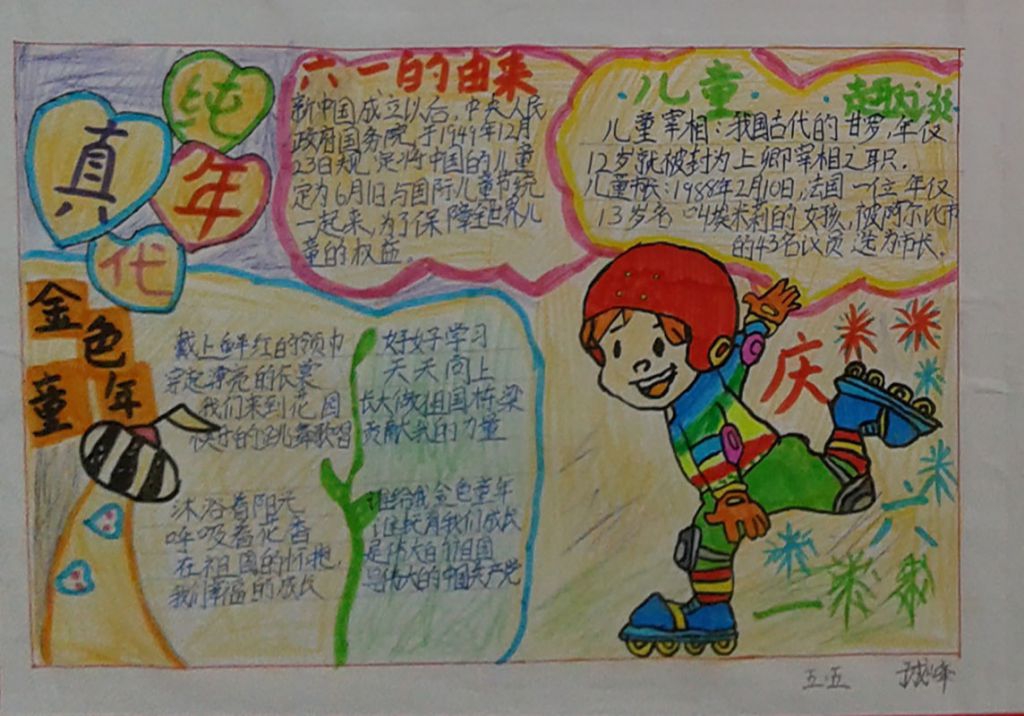 纯
真
年
代
六一的由来
新中国成立以后,中央人民
政府国务院,于1949年12月
23日规定将中国的儿童
定为6月1日与国际儿童节统
一起来,为了保障全世界儿
童的权益。
儿童趣
儿童宰相:我国古代的甘罗,年仅
12岁就被封为上卿宰相之职.
儿童市长:1988年2月10日,法国一位年仅
13岁名叫埃米莉的女孩,被阿尔比市
的43名议员选为市长.
金色
童年
戴上鲜红的领巾
穿起漂亮的长裳
我们来到花园
快乐的跳舞歌唱
好好学习
天天向上
长大做祖国栋梁
贡献我的力量
沐浴着阳光
呼吸着花香
在祖国的怀抱,
我们幸福的成长
谁给我金色童年
谁抚育我们成长
是伟大的祖国
是伟大的中国共产党
庆
六
一
五.五